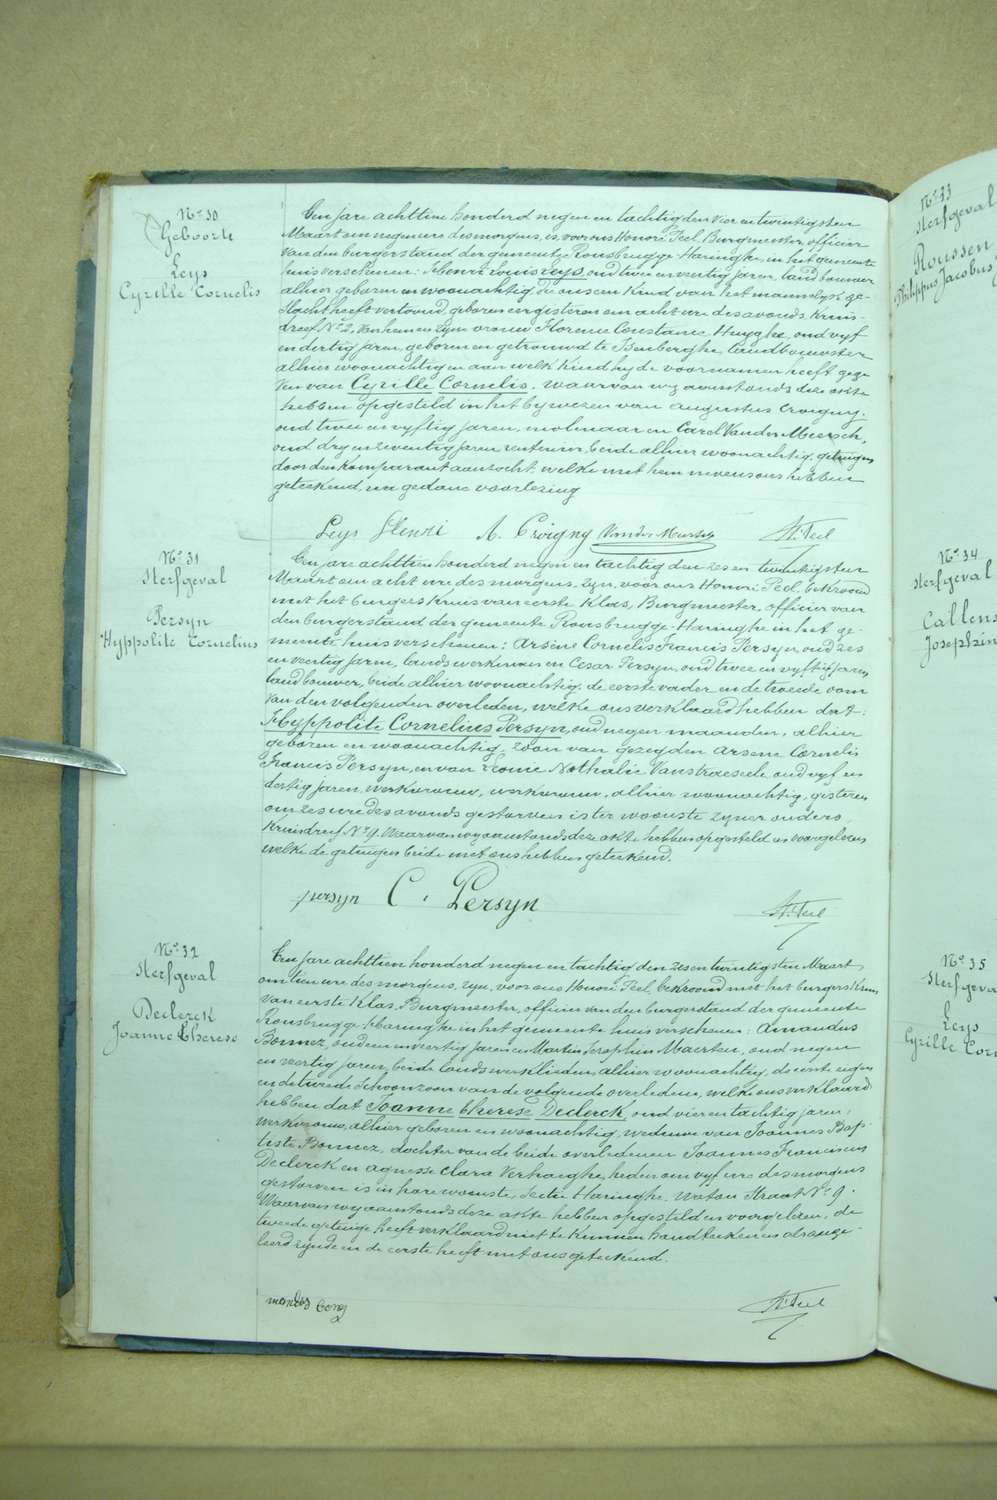 Nº 30
Geboorte
Leys
Cyrille Cornelis
Een jare achttien honderd negen en tachtig den vier en twintigsten
Maart om negen ure des morgens, is, voor ons Honoré Feel, Burgmeester, officier
van den burgerstand der gemeente Rousbrugge-Haringhe, in het gemeente
huis verschenen: Henri Louis Leys, oud twee en veertig jaren, landbouwer
alhier geboren en woonachtig, die ons een kind van het mannelijk ge-
slacht heeft vertoond, geboren eergisteren om acht ure des avonds, Kruis-
dreef Nº 2, van hem en zyne vrouw Florence Constance Huyghe, oud vyf
en dertig jaren, geboren en getrouwd te Isenberghe, landbouwster
alhier woonachtig en aan welk kind hy de voornamen heeft gege
ven van Cyrille Cornelis. Waarvan wy aanstonds deze akte
hebben opgesteld in het bywezen van Augustus Croigny,
oud twee en vyftig jaren, molenaar en Carel Vander Meersch,
oud dry en zeventig jaren, rentenier, beide alhier woonachtig, getuigen
door den komparant aanzocht, welke met hem nevens ons hebben
geteekend, na gedane voorlezing
Leys Henri A. Croigny Vander Meersch Hré Feel
Nº 31
Sterfgeval
Persyn
Hyppolite Cornelius
Een jare achttien honderd negen en tachtig den zes en twintigsten
Maart om acht ure des morgens, zyn, voor ons Honoré Feel, bekroond
met het burgerskruis van eerste klas, Burgmeester, officier van
den burgerstand der gemeente Rousbrugge-Haringhe in het ge
meente huis verschenen: Arsène Cornelis Francis Persyn oud zes
en veertig jaren, landswerkman en Cesar Persyn, oud twee en vyftig jaren,
landbouwer, beide alhier woonachtig, de eerste vader en de tweede oom
van den volgenden overleden, welke ons verklaard hebben dat:
Hyppolite Cornelius Persyn, oud negen maanden, alhier
geboren en woonachtig, zoon van gezegden Arsene Cornelis
Francis Persyn, en van Leonie Nathalie Vanstraeseele oud vyf en
dertig jaren, werkvrouw, werkvrouw, alhier woonachtig, gisteren
om zes ure des avonds gestorven is ter wooonste zyner ouders,
Kruisdreef Nº 9. Waarvan wy aanstonds deze akte hebben opgesteld en voorgelezen
welke de getuigen beide met ons hebben geteekend.
persyn C. Persyn Hré Feel
Nº 32
Sterfgeval
Declerck
Joanne Therese
Een jare achttien honderd negen en tachtig den zes en twintigsten Maart
om tien ure des morgens, zyn, voor ons Honoré Feel, bekroond met het burgerskruis
van eerste klas, Burgmeester, officier van den burgerstand der gemeente
Rousbrugge-Haringhe in het gemeente huis verschenen: Amandus
Bonnez, oud en veertig jaren en Martin Seraphin Maerten, oud negen
en veertig jaren, beide landswerklieden, alhier woonachtig, de eerste eigen
en de tweede schoonzoon van de volgende overledene, welke ons verklaard
hebben dat Joanne Therese Declerck, oud vier en tachtig jaren,
werkvrouw, alhier geboren en woonachtig, weduwe van Joannes Bap-
tiste Bonnez, dochter van de beide overledenen Joannes Franciscus
Declerck en Agnesse Clara Verhaeghe, heden om vyf ure des morgens
gestorven is in hare woonste, sectie Haringhe, Watou Straat Nº 9.
Waarvan wy aanstonds deze akte hebben opgesteld en voorgelezen, de
tweede getuige heeft verklaard niet te kunnen handteeken en als onge-
leerd zynde en de eerste heeft met ons geteekend.
Hré Feel
Nº 33
Sterfgeval
Roussen
Philippus Jacobus
Nº 34
Sterfgeval
Callens
Josephin
Nº 35
Sterfgeva
Leys
Cyrille Corn